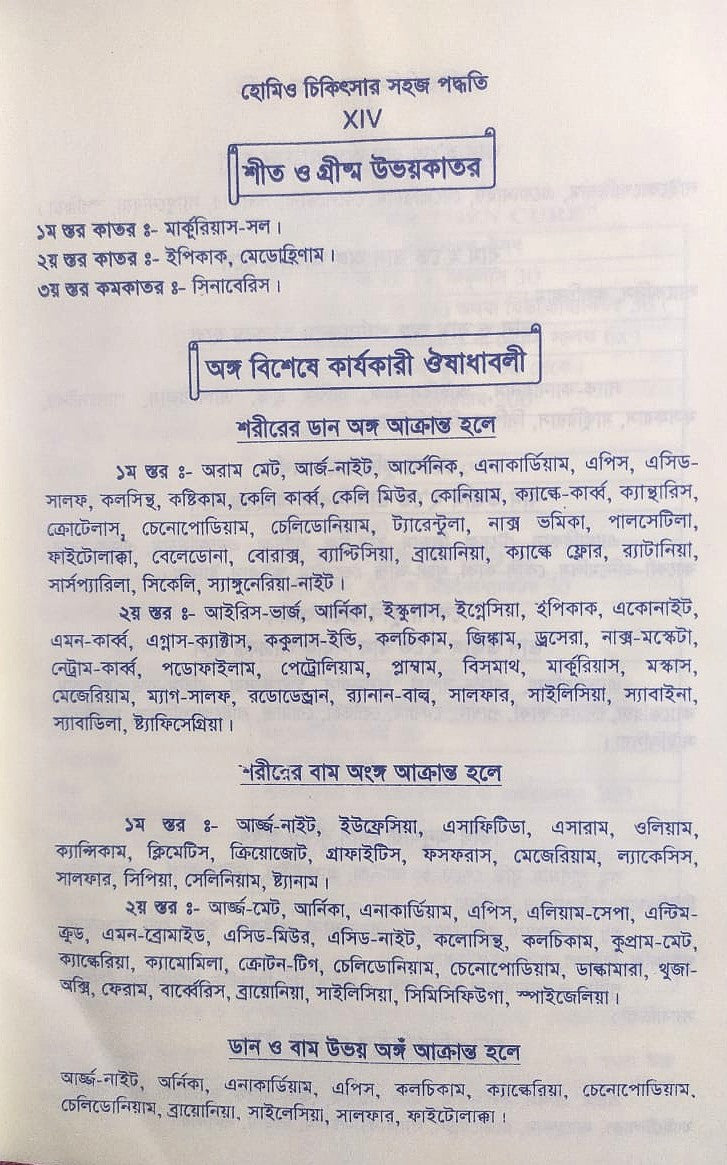 হোমিও চিকিৎসার সহজ পদ্ধতি
XIV
শীত ও গ্রীষ্ম উভয়কাতর
১ম স্তর কাতর ঃ- মার্কুরিয়াস-সল।
২য় স্তর কাতর ঃ- ইপিকাক, মেডোহিণাম।
৩য় স্তর কমকাতর ঃ- সিনাবেরিস।
অঙ্গ বিশেষে কার্যকারী ঔষাধাবলী
শরীরের ডান অঙ্গ আক্রান্ত হলে
১ম স্তর ঃ- অরাম মেট, আর্জ-নাইট, আর্সেনিক, এনাকার্ডিয়াম, এপিস, এসিড-
সালফ, কলসিন্থ, কষ্টিকাম, কেলি কার্ব্ব, কেলি মিউর, কোনিয়াম, ক্যাল্কে-কার্ব্ব, ক্যান্থারিস,
ক্রোটেলাস, চেনোপোডিয়াম, চেলিডোনিয়াম, ট্যারেন্টুলা, নাক্স ভমিকা, পালসেটিলা,
ফাইটোলাক্কা, বেলেডোনা, বোরাক্স, ব্যাপ্টিসিয়া, ব্রায়োনিয়া, ক্যাল্কে ফ্লোর, র‍্যাটানিয়া,
সার্সপ্যারিলা, সিকেলি, স্যাঙ্গুনেরিয়া-নাইট।
২য় স্তর ঃ- আইরিস-ভার্জ, আর্নিকা, ইস্কুলাস, ইগ্নেসিয়া, ইপিকাক, একোনাইট,
এমন-কার্ব্ব, এগ্নাস-ক্যাক্টাস, ককুলাস-ইন্ডি, কলচিকাম, জিঙ্কাম, ড্রসেরা, নাক্স-মস্কেটা,
নেট্রাম-কার্ব্ব, পডোফাইলাম, পেট্রোলিয়াম, প্লাম্বাম, বিসমাথ, মার্কুরিয়াস, মস্কাস,
মেজেরিয়াম, ম্যাগ-সালফ, রডোডেন্ড্রান, র‍্যানান-বাল্ব, সালফার, সাইলিসিয়া, স্যাবাইনা,
স্যাবাডিলা, ষ্ট্যাফিসেগ্রিয়া।
শরীরের বাম অংঙ্গ আক্রান্ত হলে
১ম স্তর ঃ- আর্জ্জ-নাইট, ইউফ্রেসিয়া, এসাফিটিডা, এসারাম, ওলিয়াম,
ক্যাপ্সিকাম, ক্লিমেটিস, ক্রিয়োজোট, গ্রাফাইটিস, ফসফরাস, মেজেরিয়াম, ল্যাকেসিস,
সালফার, সিপিয়া, সেলিনিয়াম, ষ্ট্যানাম।
২য় স্তর ঃ- আর্জ্জ-মেট, আর্নিকা, এনাকার্ডিয়াম, এপিস, এলিয়াম-সেপা, এন্টিম-
ক্রুড, এমন-ব্রোমাইড, এসিড-মিউর, এসিড-নাইট, কলোসিন্থ, কলচিকাম, কুপ্রাম-মেট,
ক্যাল্কেরিয়া, ক্যামোমিলা, ক্রোটন-টিগ, চেলিডোনিয়াম, চেনোপোডিয়াম, ডাল্কামারা, থুজা-
অক্সি, ফেরাম, বার্ব্বেরিস, ব্রায়োনিয়া, সাইলিসিয়া, সিমিসিফিউগা, স্পাইজেলিয়া।
ডান ও বাম উভয় অঙ্গঁ আক্রান্ত হলে
আর্জ্জ-নাইট, অর্নিকা, এনাকার্ডিয়াম, এপিস, কলচিকাম, ক্যাল্কেরিয়া, চেনোপোডিয়াম,
চেলিডোনিয়াম, ব্রায়োনিয়া, সাইলেসিয়া, সালফার, ফাইটোলাক্কা।